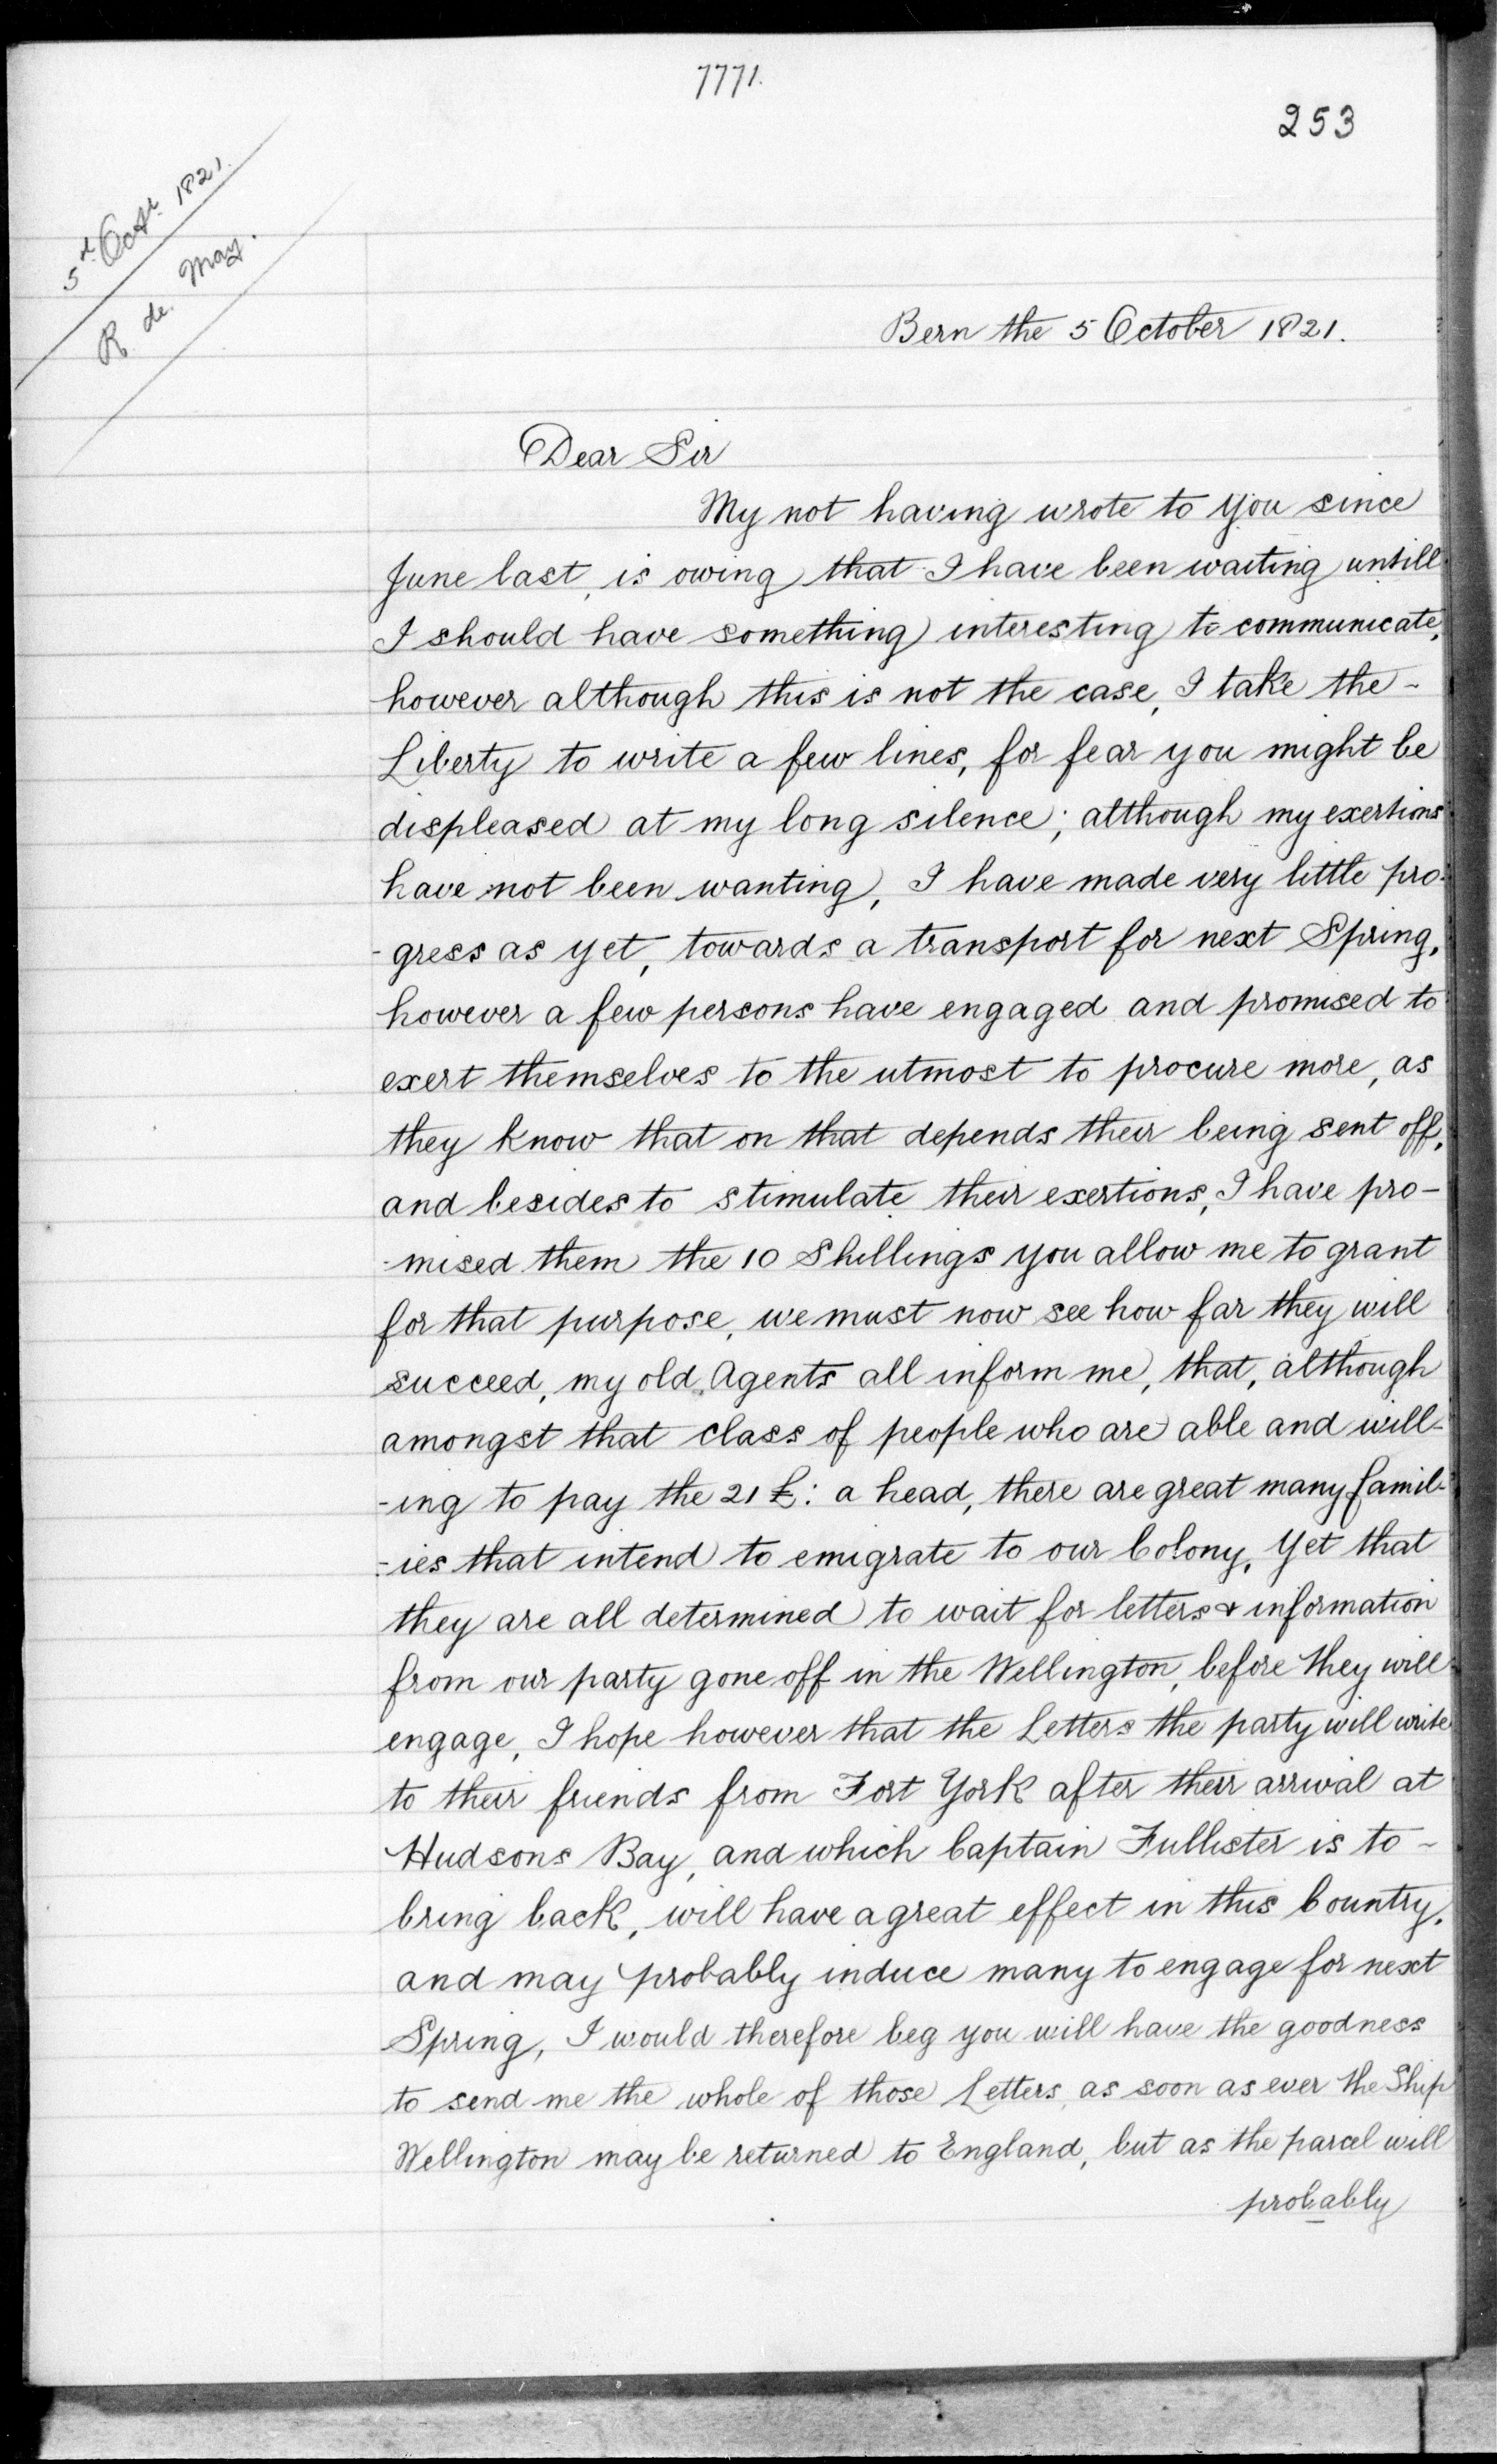 7771.
253
5th Octr. 1821.
R. de May.
Bern the 5 October 1821.
Dear Sir
My not having wrote to you since
June last, is owing that I have been waiting untill
I should have something interesting to communicate,
however although this is not the case, I take the -
Liberty to write a few lines, for fear you might be
displeased at my long silence; although my exertions
have not been wanting, I have made very little pro-
-gress as yet, towards a transport for next Spring,
however a few persons have engaged and promised to
exert themselves to the utmost to procure more, as
they know that on that depends their being sent off,
and besides to stimulate their exertions, I have pro-
-mised them the 10 Shillings you allow me to grant
for that purpose, we must now see how far they will
succeed, my old Agents all inform me, that, although
amongst that class of people who are able and will-
-ing to pay the 21 £: a head, there are great many famil-
-ies that intend to emigrate to our Colony, Yet that
they are all determined to wait for letters & information
from our party gone off in the Wellington, before they will
engage, I hope however that the Letters the party will write
to their friends from Fort York after their arrival at
Hudsons Bay, and which Captain Fullister is to -
bring back, will have a great effect in this Country,
and may probably induce many to engage for next
Spring, I would therefore beg you will have the goodness
to send me the whole of those Letters, as soon as ever the Ship
Wellington may be returned to England, but as the parcel will
probably